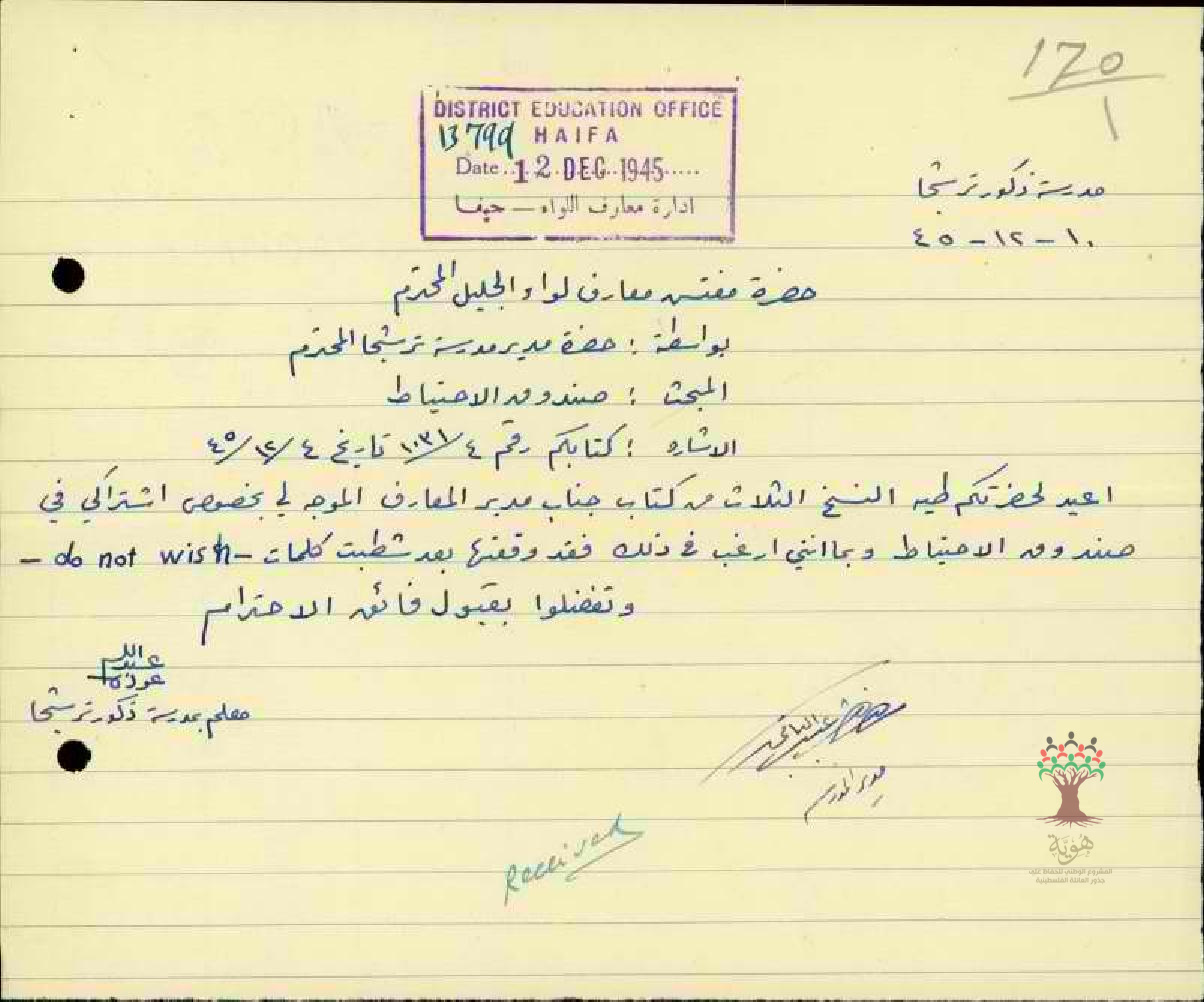 170
1
DISTRICT EDUCATION OFFICE
13799 HAIFA
Date 12 DEC 1945
ادارة معارف اللواء — حيفا
مدرسة ذكور ترشيحا
١٠ – ١٢ – ٤٥
حضرة مفتش معارف لواء الجليل المحترم
بواسطة : حضرة مدير مدرسة ترشيحا المحترم
المبحث : صندوق الاحتياط
الاشارة : كتابكم رقم ٤/١٠٣١ تاريخ ٤/١٢/٤٥
اعيد لحضرتكم طيه النسخ الثلاث من كتاب جناب مدير المعارف الموجه لي بخصوص اشتراكي في
صندوق الاحتياط وبما انني ارغب في ذلك فقد وقعتها بعد شطبت كلمات – do not wish –
وتفضلوا بقبول فائق الاحترام
عبدالله
عودة
معلم بمدرسة ذكور ترشيحا
مدير المدرسة
Received
هُوِيَّة
المشروع الوطني للحفاظ على
جذور العائلة الفلسطينية